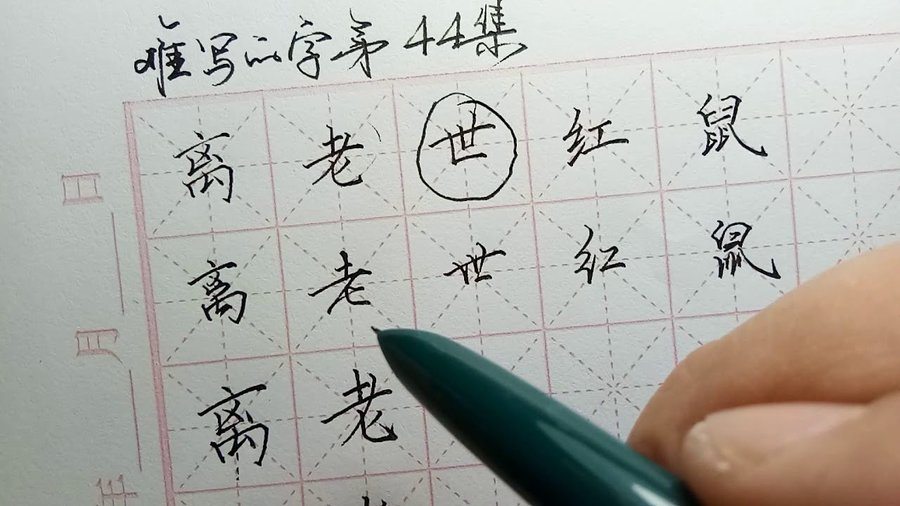 难写的字第44集
离老世红鼠
离老世红鼠
离老
日
月